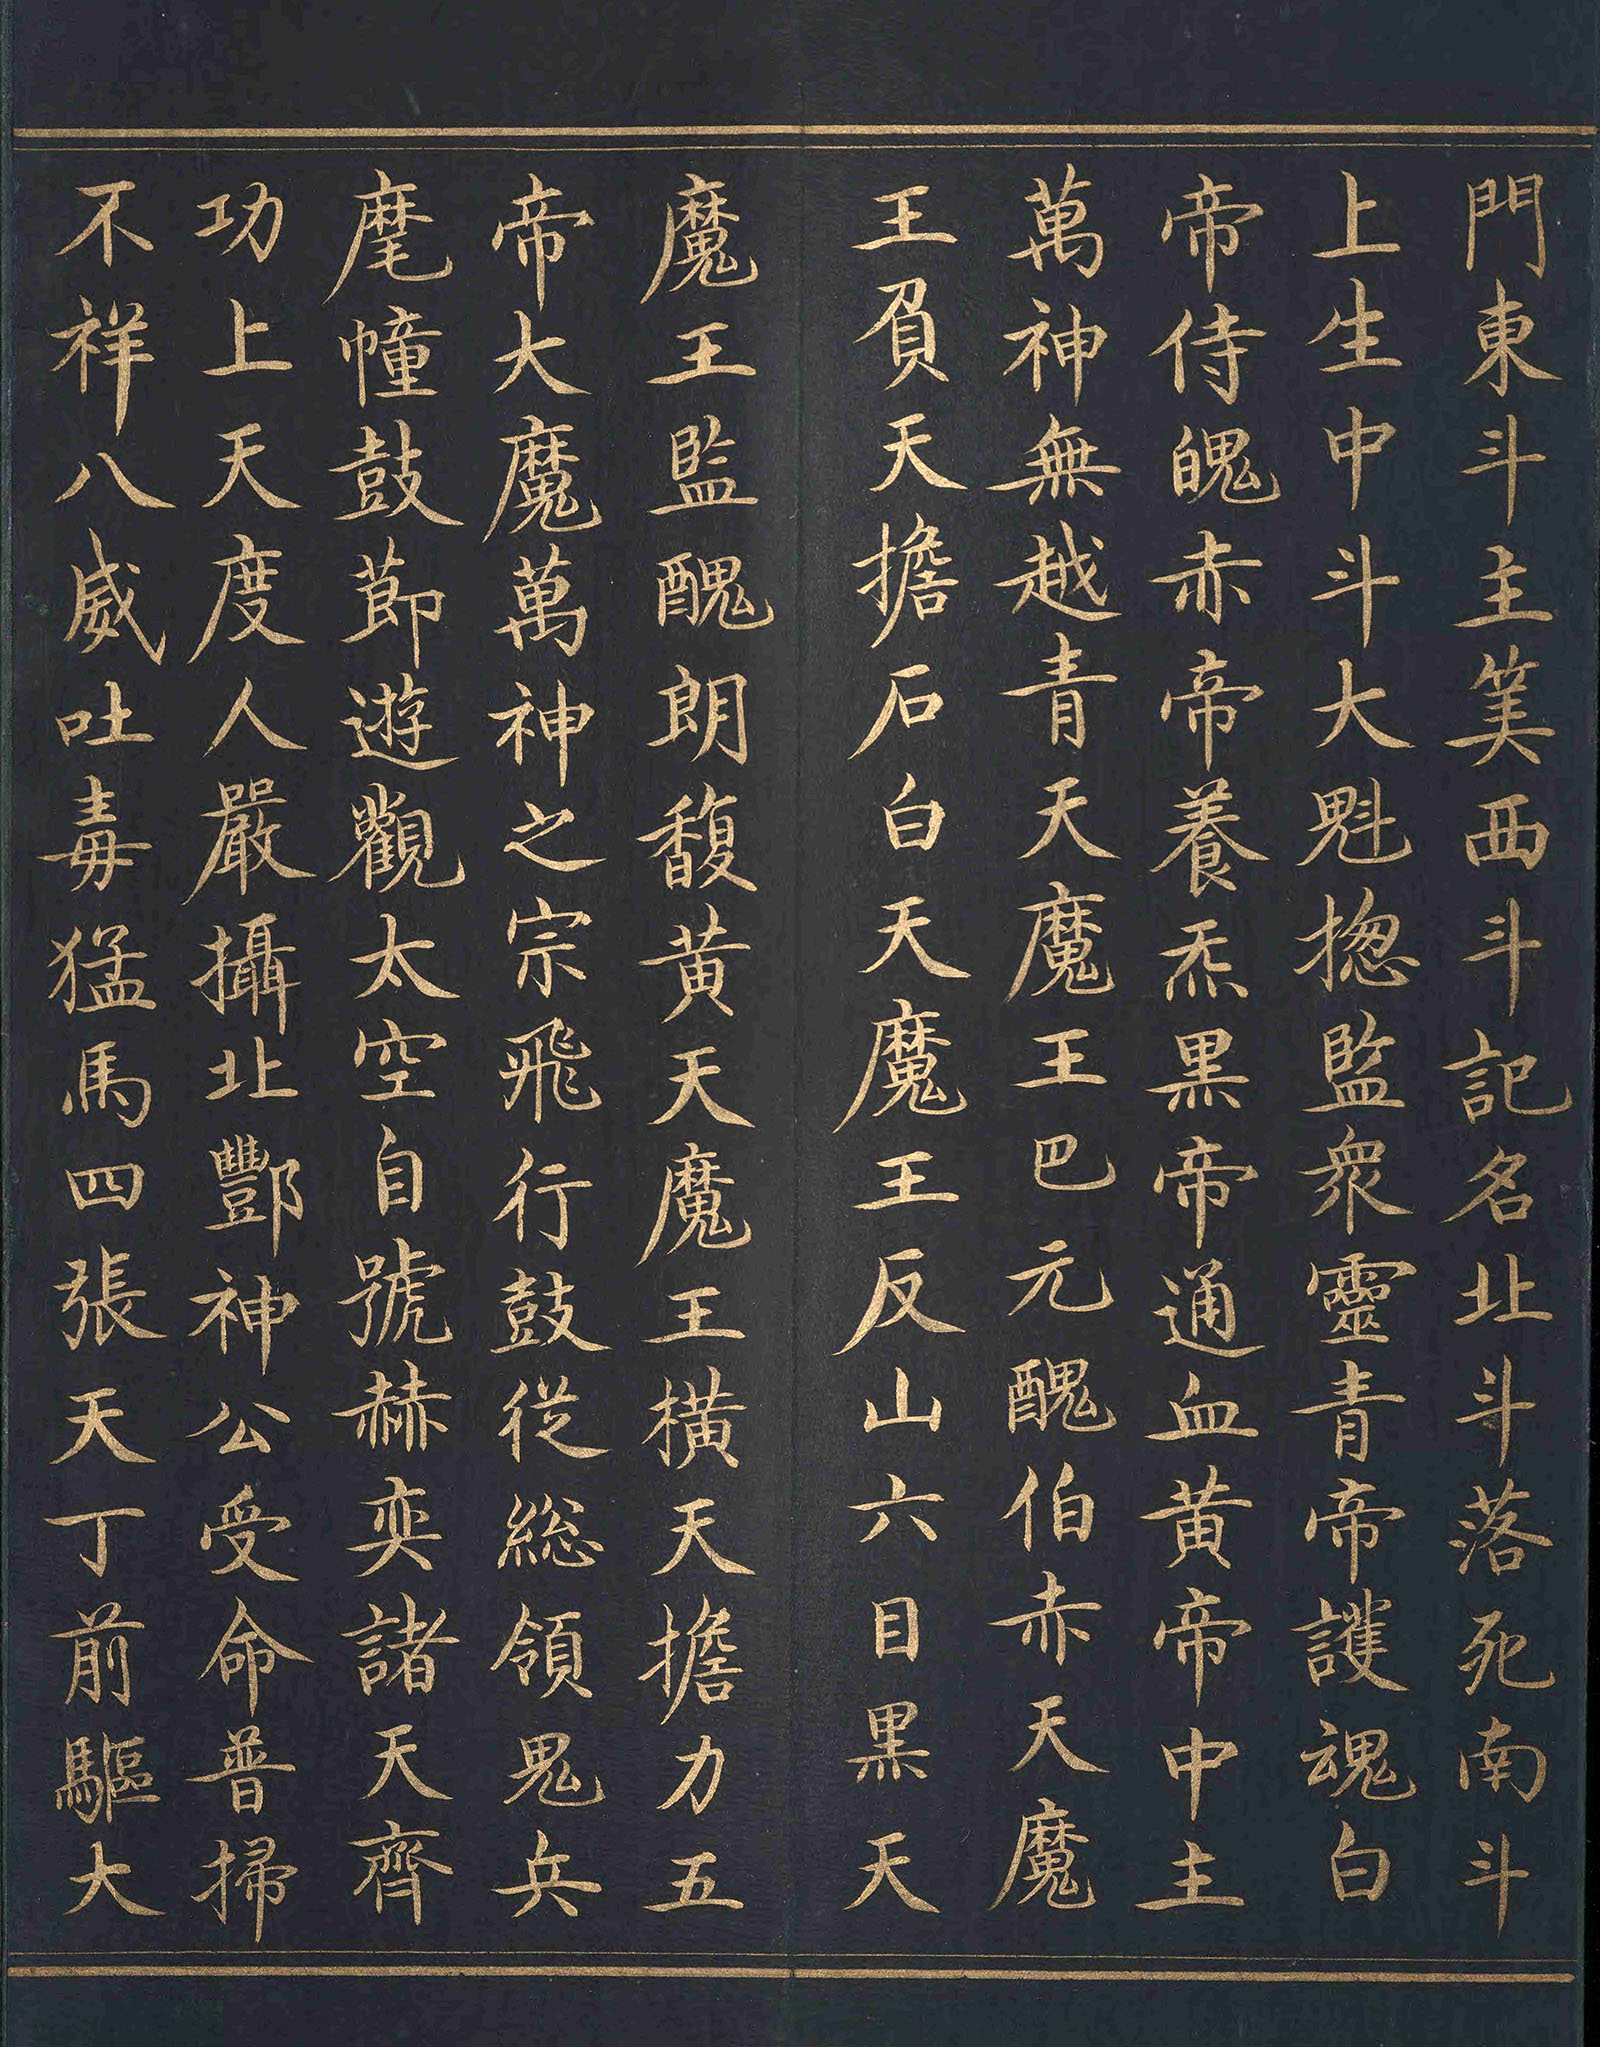 門東斗主筭西斗記名北斗落死南斗
上生中斗大魁揔監衆靈青帝護魂白
帝侍魄赤帝養炁黒帝通血黄帝中主
萬神無越青天魔王巴元醜伯赤天魔
王負天擔石白天魔王反山六目黒天
魔王監醜朗馥黄天魔王横天擔力五
帝大魔萬神之宗飛行鼓從総領鬼兵
麾幢鼓節遊觀太空自號赫奕諸天齊
功上天度人嚴攝北酆神公受命普掃
不祥八威吐毒猛馬四張天丁前驅大